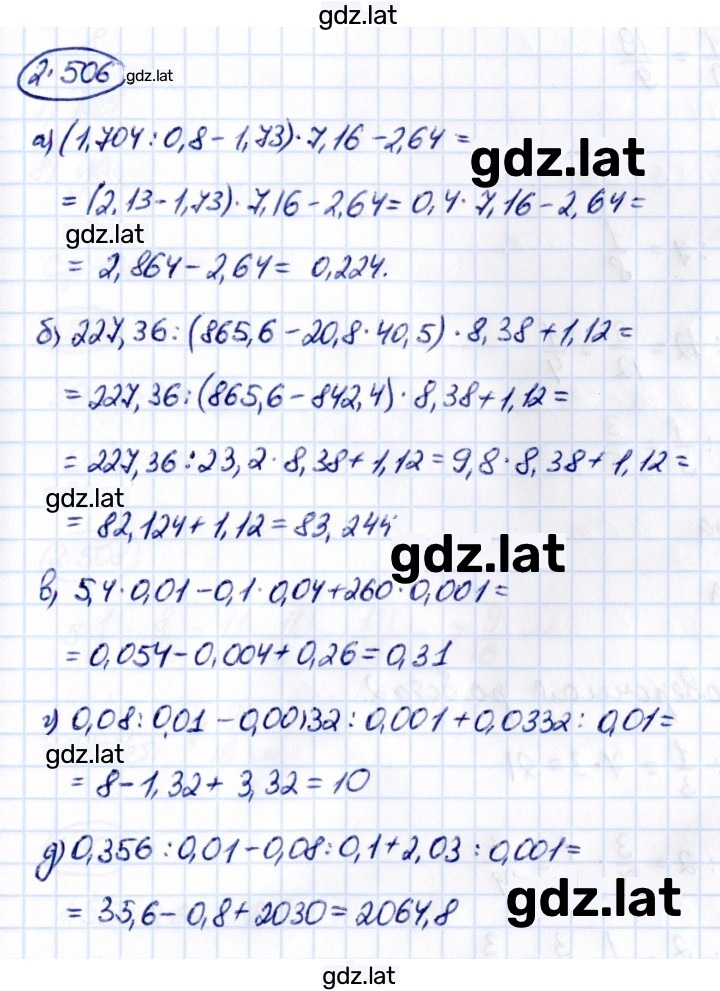 gdz.lat
2.506 gdz.lat
а) (1,704 : 0,8 - 1,73) · 7,16 - 2,64 =
gdz.lat
= (2,13 - 1,73) · 7,16 - 2,64 = 0,4 · 7,16 - 2,64 =
gdz.lat
= 2,864 - 2,64 = 0,224.
б) 227,36 : (865,6 - 20,8 · 40,5) · 8,38 + 1,12 =
= 227,36 : (865,6 - 842,4) · 8,38 + 1,12 =
= 227,36 : 23,2 · 8,38 + 1,12 = 9,8 · 8,38 + 1,12 =
gdz.lat
= 82,124 + 1,12 = 83,244
gdz.lat
в) 5,4 · 0,01 - 0,1 · 0,04 + 260 · 0,001 =
= 0,054 - 0,004 + 0,26 = 0,31
г) 0,08 : 0,01 - 0,00132 : 0,001 + 0,0332 : 0,01 =
gdz.lat
= 8 - 1,32 + 3,32 = 10
д) 0,356 : 0,01 - 0,08 : 0,1 + 2,03 : 0,001 =
gdz.lat
= 35,6 - 0,8 + 2030 = 2064,8
gdz.lat